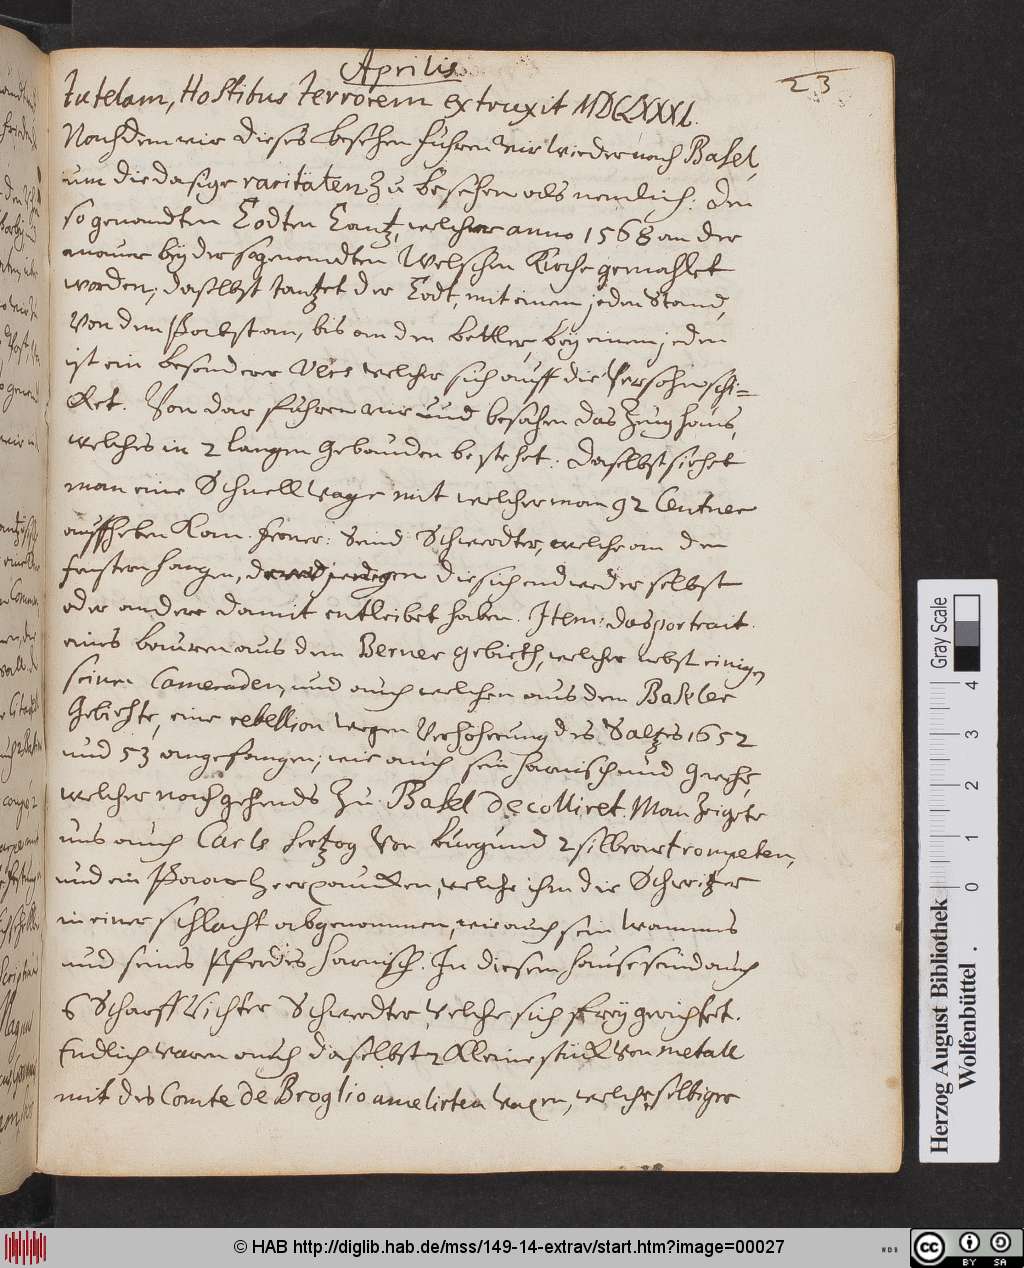 Aprilis
23
tutelam, Hostibus terrorem extruxit MDCLXXXI.
Nachdem wir dieses besehen fuhren wir wieder nach Basel,
um die dasige raritäten zu besehen als nemlich: Den
so genandten Todten Tantz, welcher anno 1568 an der
mauer beÿ der sogenandten Welschen Kirche gemahlet
worden; daselbst tantzet der Todt, mit einem jeden Stand,
Von dem Pabst an, bis an den bettler, beÿ einem jeden
ist ein besonderer Vers welcher sich auff die Persohn schi=
cket. Von dar fuhren wir und besahen das Zeughaus,
welches in 2 langen Gebauden bestehet: daselbst siehet
man eine Schnellwage mit welcher man 92 Centner
auffheben kan. ferner: Seind Schwerdter, welche an den
fenstern hangen, die sich endweder selbst
oder andere damit entleibet haben. Item: das portrait
eines bauren aus dem Berner gebieth, welcher nebst einigen
seiner Cameraden, und auch welchen aus dem Baseler
Gebiethe, eine rebellion wegen Verhöherung des Saltzes 1652
und 53 angefangen; wie auch sein harnisch und
welcher nachgehends Zu Basel decolliret. Man Zeigete
uns auch Carls hertzog von burgund 2 silberne trompeten,
und ein Paar heerpaucken, welche ihm die Schweitzer
in einer schlacht abgenommen, wie auch sein wammes
und seines Pferdes harnisch. In diesem hause seind auch
6 Scharffrichter Schwerdter welche sich freÿ gerichtet.
Endlich waren auch daselbst 2 kleine stück von metall
mit des Comte de Broglio amelirten wapen, welche selbiger
Herzog August Bibliothek
Wolfenbüttel
Gray Scale
0 1 2 3 4
© HAB http://diglib.hab.de/mss/149-14-extrav/start.htm?image=00027
cc BY SA